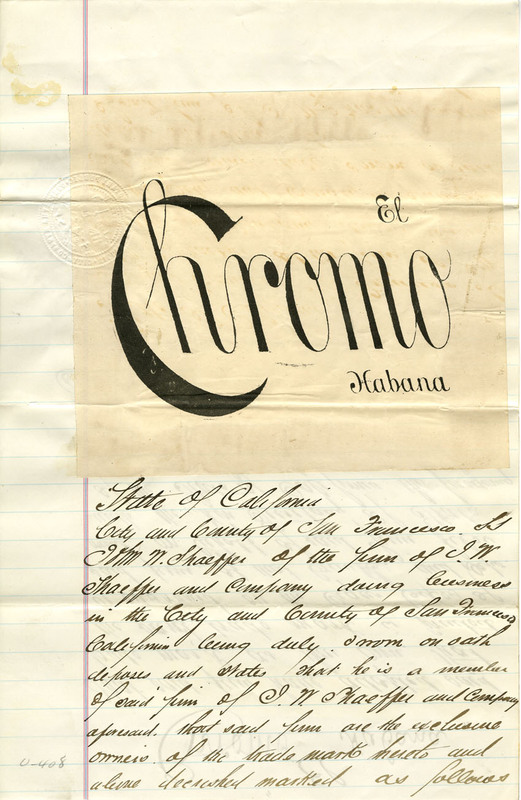 El
Chromo
Habana
State of California
City and County of San Francisco SS
John W. Shaeffer of the firm of J. W.
Shaeffer and Company doing business
in the City and County of San Francisco
California being duly sworn on oath
deposes and states that he is a member
of said firm of J. W Shaeffer and Company
aforesaid that said firm are the exclusive
owners of the trade mark hereto and
above described marked as follows
U-408